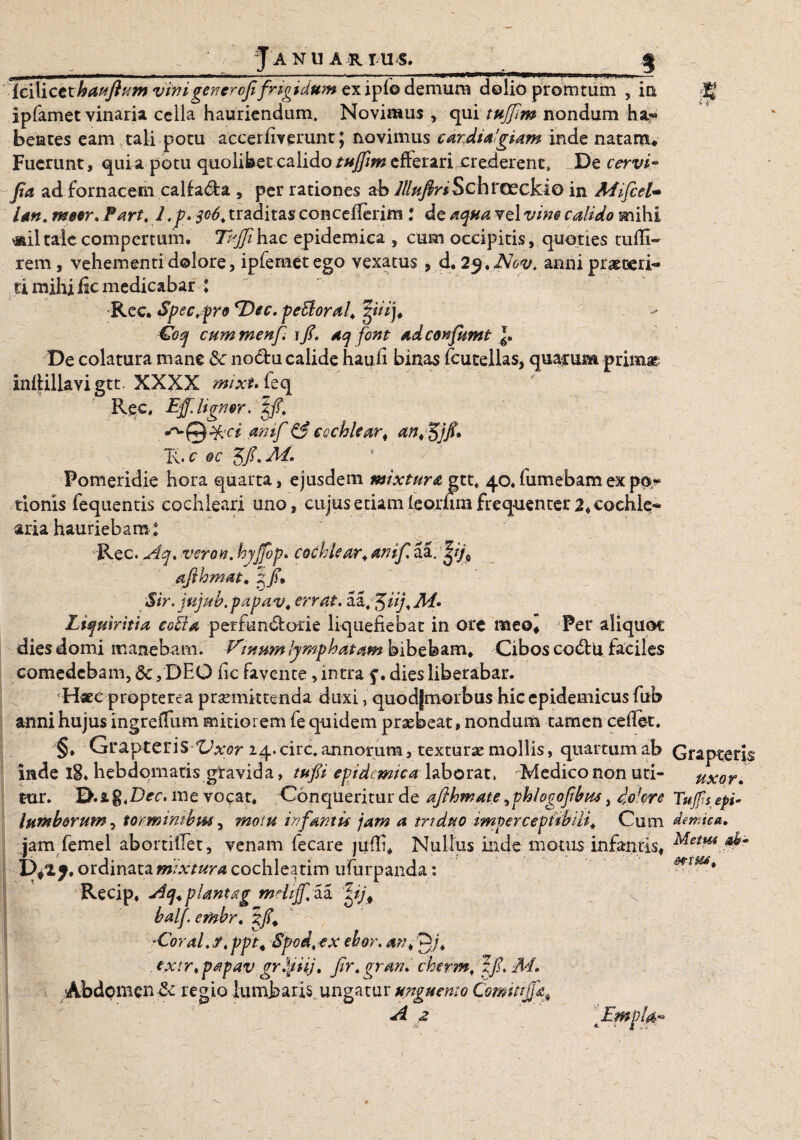 JANUARIUS. 3
scilicet haustum vini generosi frigidum ex ipso demum dolio promtum , in
ipsamet vinaria cella hauriendum. Novimus , qui tussim nondum ha-
bentes eam tali potu accersiverunt; novimus cardialgiam inde natam.
Fuerunt, quia potu quolibet calido tussim efferari crederent. De cervi-
sia ad fornacem calfacta , per rationes ab Illustri Schrœckio in Miscel-
lan. meor. Part. 1. p. 306. traditas concesserim : de aqua vel vino calido mihi
nil tale compertum. Tussi hac epidemica , cum occipitis, quoties tussi-
rem, vehementi dolore, ipsemet ego vexatus , d. 29. Nov. anni præteri-
ti mihi sic medicabar :
Rec. Spec. pro Dec. pectoral. ℥iiij.
Coq cum mens. iß. aq font ad consumt
De colatura mane & noctu calide hausi binas scutellas, quarum primæ
instillavi gtt. XXXX mixt. seq
Rec. Ess. lignor. ℥ß.
anis & cochlear. an. ʒjß.
ʒß. M.
Pomeridie hora quarta, ejusdem mixturæ gtt. 40. sumebam ex po-
tionis sequentis cochleari uno, cujus etiam seorsim frequenter 2. cochle-
aria hauriebam:
Rec. Aq. veron. hyssop. cochlear. anis. āā. ℥ij.
asthmat. ℥ß.
Sir. jujub. papav. errat. āā. ʒiij. M.
Liquiritia cocta perfunctorie liquefiebat in ore meo. Per aliquot
dies domi manebam. Vinum lymphatam bibebam. Cibos coctu faciles
comedebam, &, DEO sic favente, intra 5. dies liberabar.
Hæc propterea præmittenda duxi, quod morbus hic epidemicus sub
anni hujus ingressum mitiorem se quidem præbeat, nondum tamen cesset.
§. Grapteris Uxor 24. circ. annorum, texturæ mollis, quartum ab
inde 18. hebdomatis gravida, tussi epidemica laborat. Medico non uti-
tur. D. 28. Dec. me vocat. Conqueritur de asthmate, phlogosibus, dolore
lumborum, torminibus, motu infantis jam a triduo imperceptibili. Cum
jam semel abortisset, venam secare jussi. Nullus inde motus infantis.
D. 29. ordinata mixtura cochleatim usurpanda:
Recip. Aq. plantag meliss. āā ℥ij.
bals. embr. ℥ß.
Coral. r. ppt. Spod. ex ebor. an. ℈j.
extr. papav gr. iiij. sir. gran. cherm. ℥ß. M.
Abdomen & regio lumbaris ungatur unguento Comitissæ.
A 2 Empla-
Grapteris
uxor.
Tussis epi-
demica.
Metus ab-
ortus.